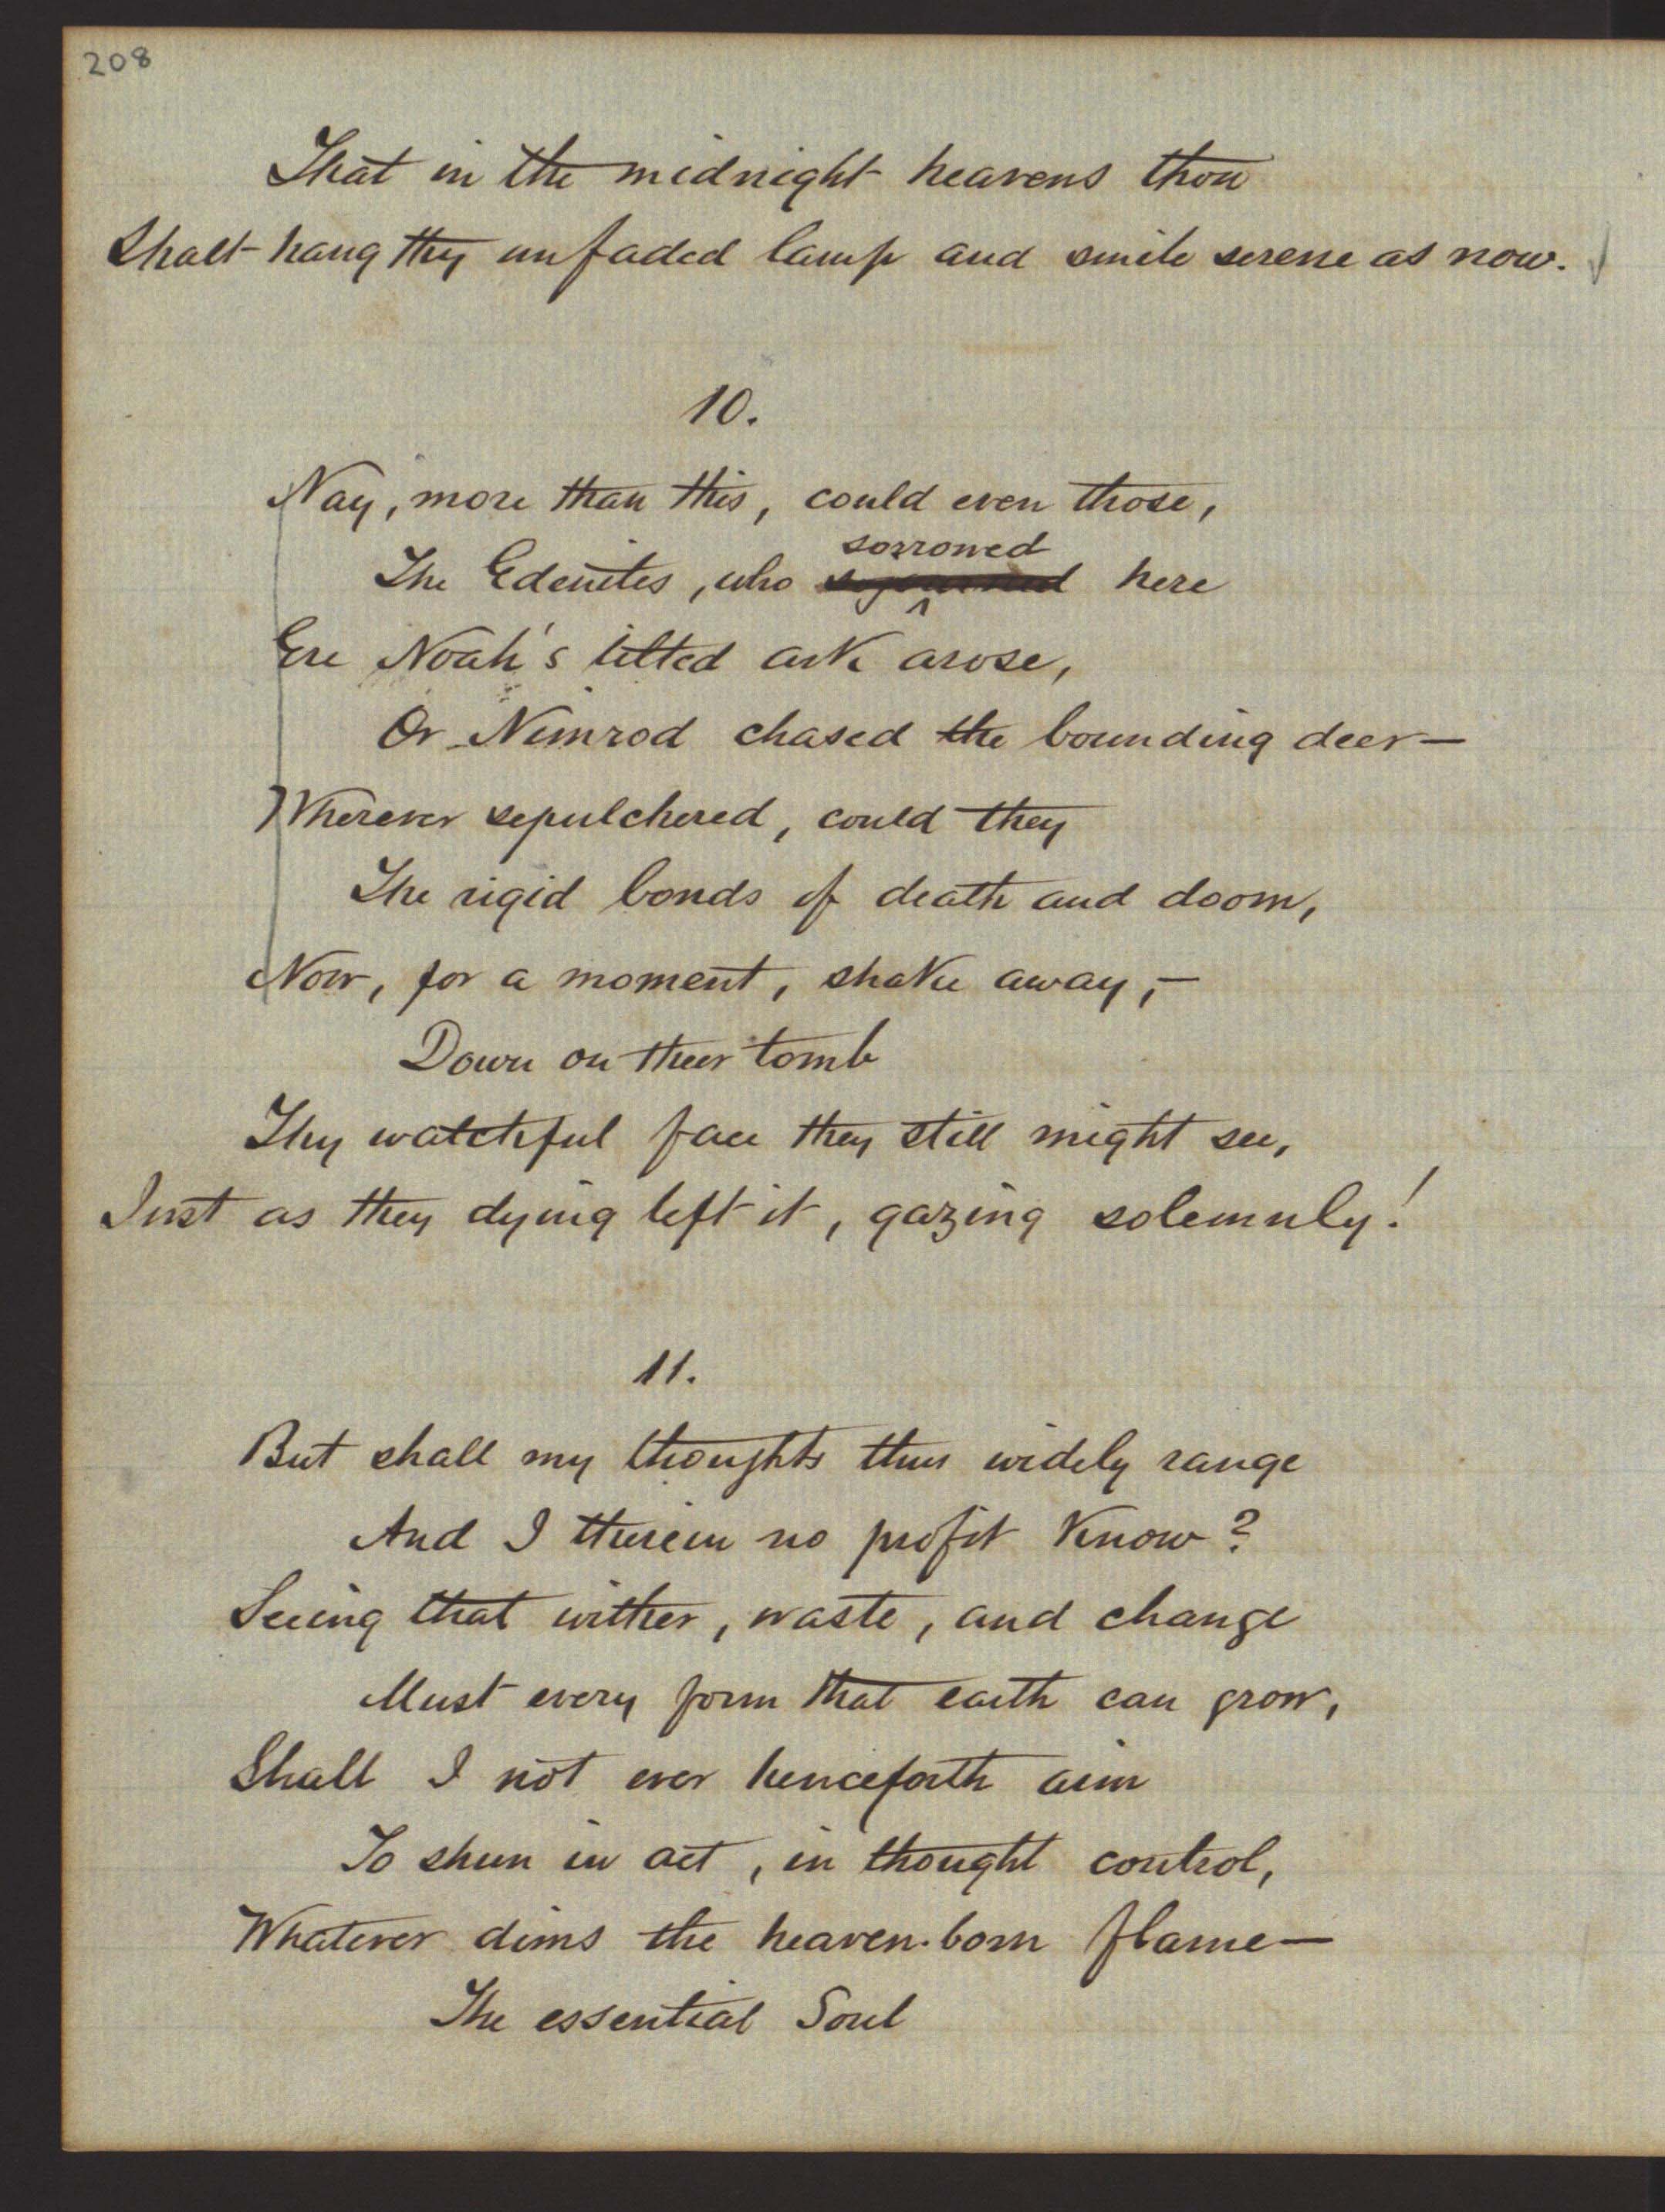 208
That in the midnight heavens thou
Shalt hang thy unfaded lamp and smile serene as now.
10.
Nay, more than this, could even those,
sorrowed
The Edenites, who sojourned here
Ere Noah's tilted ark arose,
Or Nimrod chased the bounding deer—
Wherever sepulchered, could they
The rigid bonds of death and doom,
Now, for a moment, shake away,—
Down on their tomb
Thy watchful face they still might see,
Just as they dying left it, gazing solemnly!
11.
But shall my thoughts thus widely range
And I therein no profit know?
Seeing that wither, waste, and change
Must every form that earth can grow,
Shall I not ever henceforth aim
To shun in act, in thought control,
Whatever dims the heaven-born flame—
The essential Soul